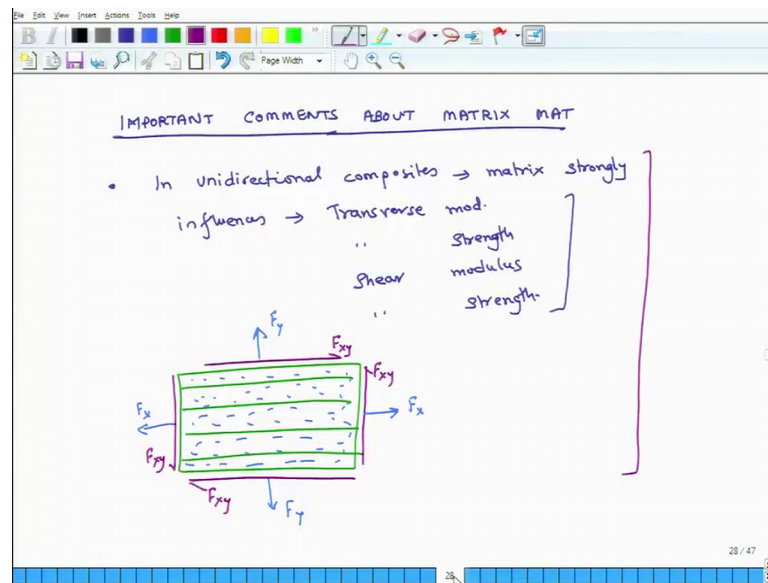 File Edit View Insert Actions Tools Help
B I
Page Width
IMPORTANT COMMENTS ABOUT MATRIX MAT
• In unidirectional composites → matrix strongly
influences → Transverse mod.
" Strength
Shear modulus
" strength.
Fy
Fxy
Fxy
Fx
Fx
Fxy
Fxy
Fy
28 / 47
28